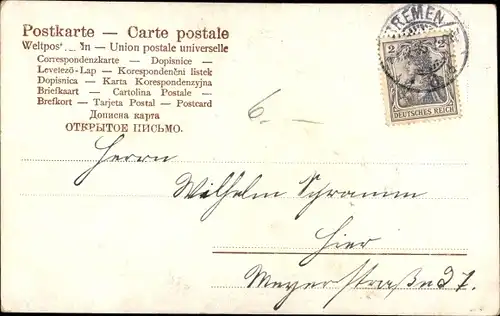 Postkarte — Carte postale
Weltpos... In — Union postale universelle
Correspondenzkarte — Dopisnice —
Levelező-Lap — Korespondenčni listek
Dopisnica — Karta Korespondencyjna
Briefkaart — Cartolina Postale —
Brefkort — Tarjeta Postal — Postcard
Дописна карта
ОТКРЫТОЕ ПИСЬМО.
BREMEN
2 2
DEUTSCHES REICH
6.—
Herrn
Wilhelm Schramm
Hier
Meyerstraße 27.